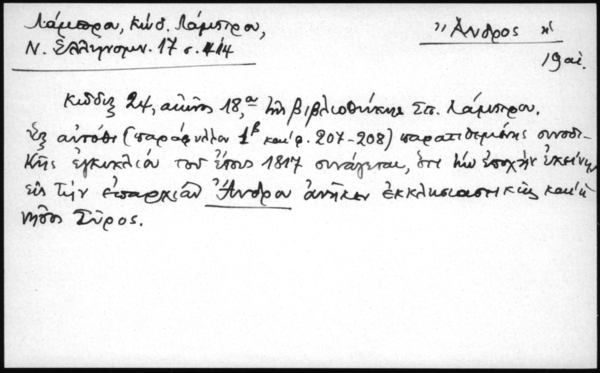 Λάμπρου, Κώδ. Λάμπρου,
Ν. Ἑλληνομν. 17 σ.
"Ἄνδρος"
19 αἰ.
Κῶδιξ 24, αἰῶνος 18,ᵒᵘ τῆς βιβλιοθήκης Σπ. Λάμπρου.
Ἐξ αὐτόθι (παράφυλλον 1ᵝ καὶ φ. 207-208) παρατιθεμένης συνοδι-
κῆς ἐγκυκλίου τοῦ ἔτους 1817 συνάγεται, ὅτι τὴν ἐποχὴν ἐκείνην
εἰς τὴν ἐπαρχίαν Ἄνδρου ἀνῆκεν ἐκκλησιαστικῶς καὶ ἡ
νῆσος Σῦρος.